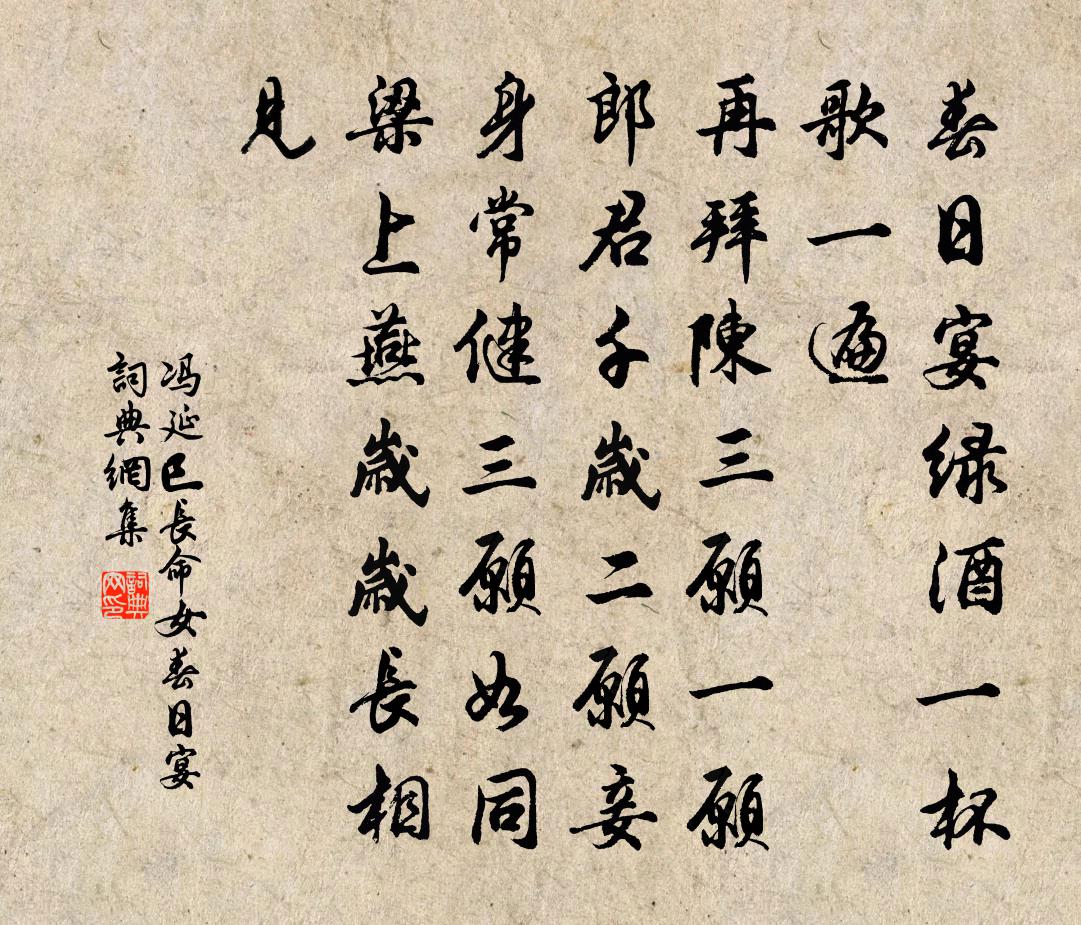 春日宴绿酒一杯
歌一遍
再拜陳三願一願
郎君千歲二願妾
身常健三願如同
梁上燕歲歲長相
見
冯延巳長命女春日宴
詞典網集
詞典网印